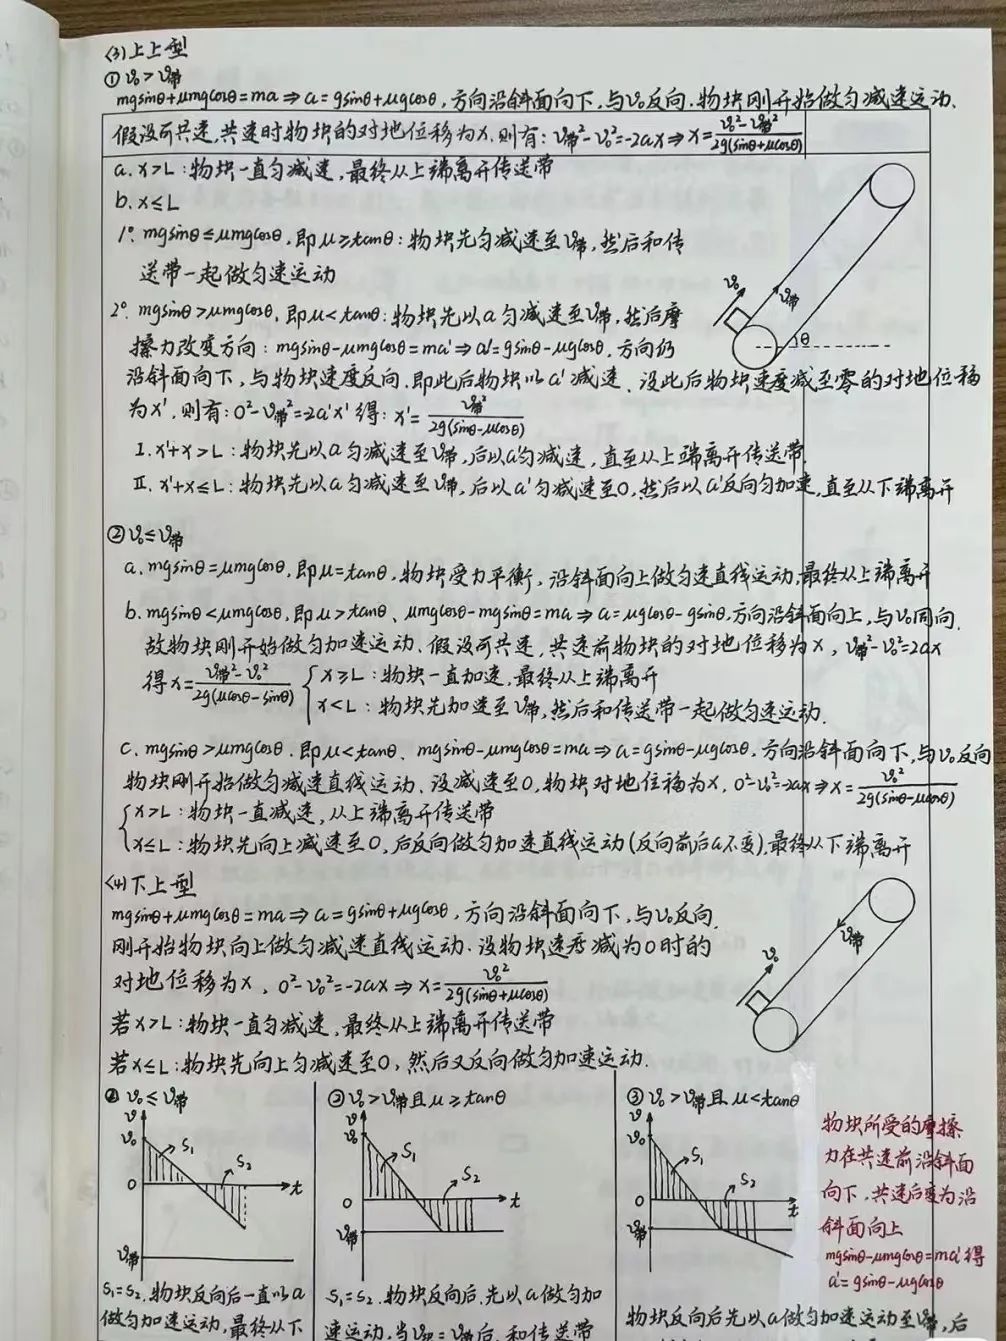 (3)上上型
① v₀>v带
mgsinθ+μmgcosθ=ma⇒a=gsinθ+μgcosθ,方向沿斜面向下,与v₀反向.物块刚开始做匀减速运动.
假设可共速,共速时物块的对地位移为x.则有:v带²-v₀²=-2ax⇒x=(v₀²-v带²)/(2g(sinθ+μcosθ))
a. x>L:物块一直匀减速,最终从上端离开传送带
b. x≤L
1°. mgsinθ≤μmgcosθ,即μ≥tanθ:物块先匀减速至v带,然后和传
送带一起做匀速运动
2°. mgsinθ>μmgcosθ,即μ<tanθ:物块先以a匀减速至v带,然后摩
擦力改变方向:mgsinθ-μmgcosθ=ma'⇒a'=gsinθ-μgcosθ.方向仍
沿斜面向下,与物块速度反向.即此后物块以a'减速、设此后物块速度减至零的对地位移
为x',则有:0²-v带²=-2a'x'得:x'=v带²/(2g(sinθ-μcosθ))
I. x'+x>L:物块先以a匀减速至v带,后以a'匀减速,直至从上端离开传送带.
II. x'+x≤L:物块先以a匀减速至v带,后以a'匀减速至0,然后以a'反向匀加速,直至从下端离开
② v₀≤v带
a. mgsinθ=μmgcosθ,即μ=tanθ,物块受力平衡,沿斜面向上做匀速直线运动,最终从上端离开
b. mgsinθ<μmgcosθ,即μ>tanθ、μmgcosθ-mgsinθ=ma⇒a=μgcosθ-gsinθ,方向沿斜面向上,与v₀同向.
故物块刚开始做匀加速运动.假设可共速,共速前物块的对地位移为x,v带²-v₀²=2ax
得x=(v带²-v₀²)/(2g(μcosθ-sinθ))
x≥L:物块一直加速,最终从上端离开
x<L:物块先加速至v带,然后和传送带一起做匀速运动.
c. mgsinθ>μmgcosθ.即μ<tanθ、mgsinθ-μmgcosθ=ma⇒a=gsinθ-μgcosθ,方向沿斜面向下,与v₀反向
物块刚开始做匀减速直线运动、设减速至0,物块对地位移为x,0²-v₀²=-2ax⇒x=v₀²/(2g(sinθ-μcosθ))
x>L:物块一直减速,从上端离开传送带
x≤L:物块先向上减速至0,后反向做匀加速直线运动(反向前后a不变),最终从下端离开
v₀
v带
θ
(4)下上型
mgsinθ+μmgcosθ=ma⇒a=gsinθ+μgcosθ,方向沿斜面向下,与v₀反向.
刚开始物块向上做匀减速直线运动.设物块速度减为0时的
对地位移为x,0²-v₀²=-2ax⇒x=v₀²/(2g(sinθ+μcosθ))
若x>L:物块一直匀减速,最终从上端离开传送带
若x≤L:物块先向上匀减速至0,然后又反向做匀加速运动.
v₀
v带
v₀≤v带
v
v₀
S₁
S₂
0
t
v带
S₁=S₂.物块反向后一直以a
做匀加速运动,最终从下
② v₀>v带且μ≥tanθ
v
v₀
S₁
S₂
0
t
v带
S₁=S₂.物块反向后,先以a做匀加
速运动,当v物=v带后,和传送带
③ v₀>v带且μ<tanθ
v
v₀
S₁
S₂
0
t
v带
物块反向后先以a做匀加速运动至v带,后
物块所受的摩擦
力在共速前沿斜面
向下,共速后变为沿
斜面向上
mgsinθ-μmgcosθ=ma'得
a'=gsinθ-μgcosθ